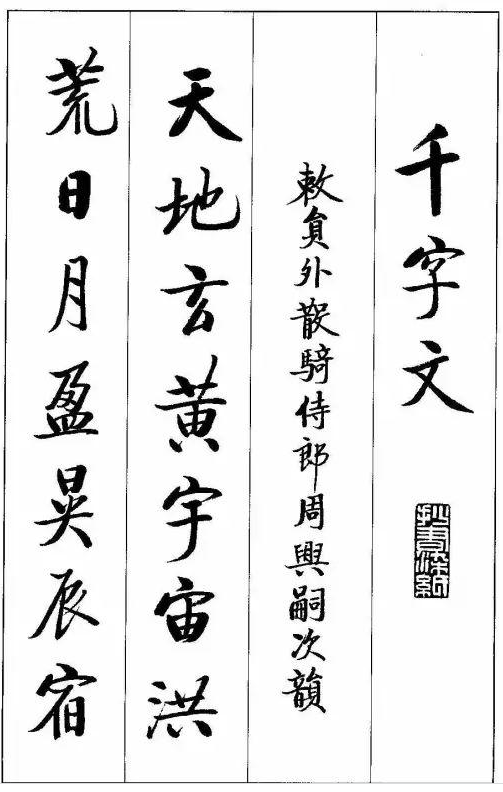 千字文
敕員外散騎侍郎周興嗣次韻
天地玄黄宇宙洪
荒日月盈昃辰宿